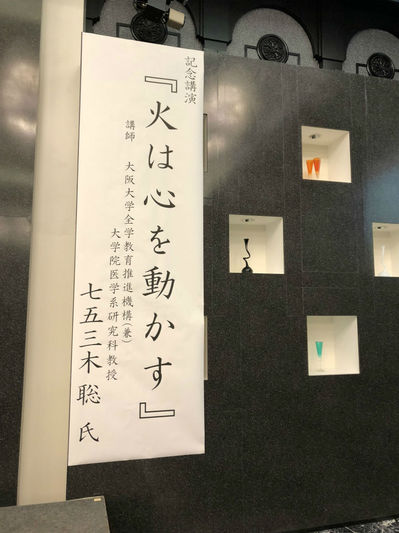 記念講演
『火は心を動かす』
講師　大阪大学全学教育推進機構(兼)
大学院医学系研究科教授
七五三木聡 氏